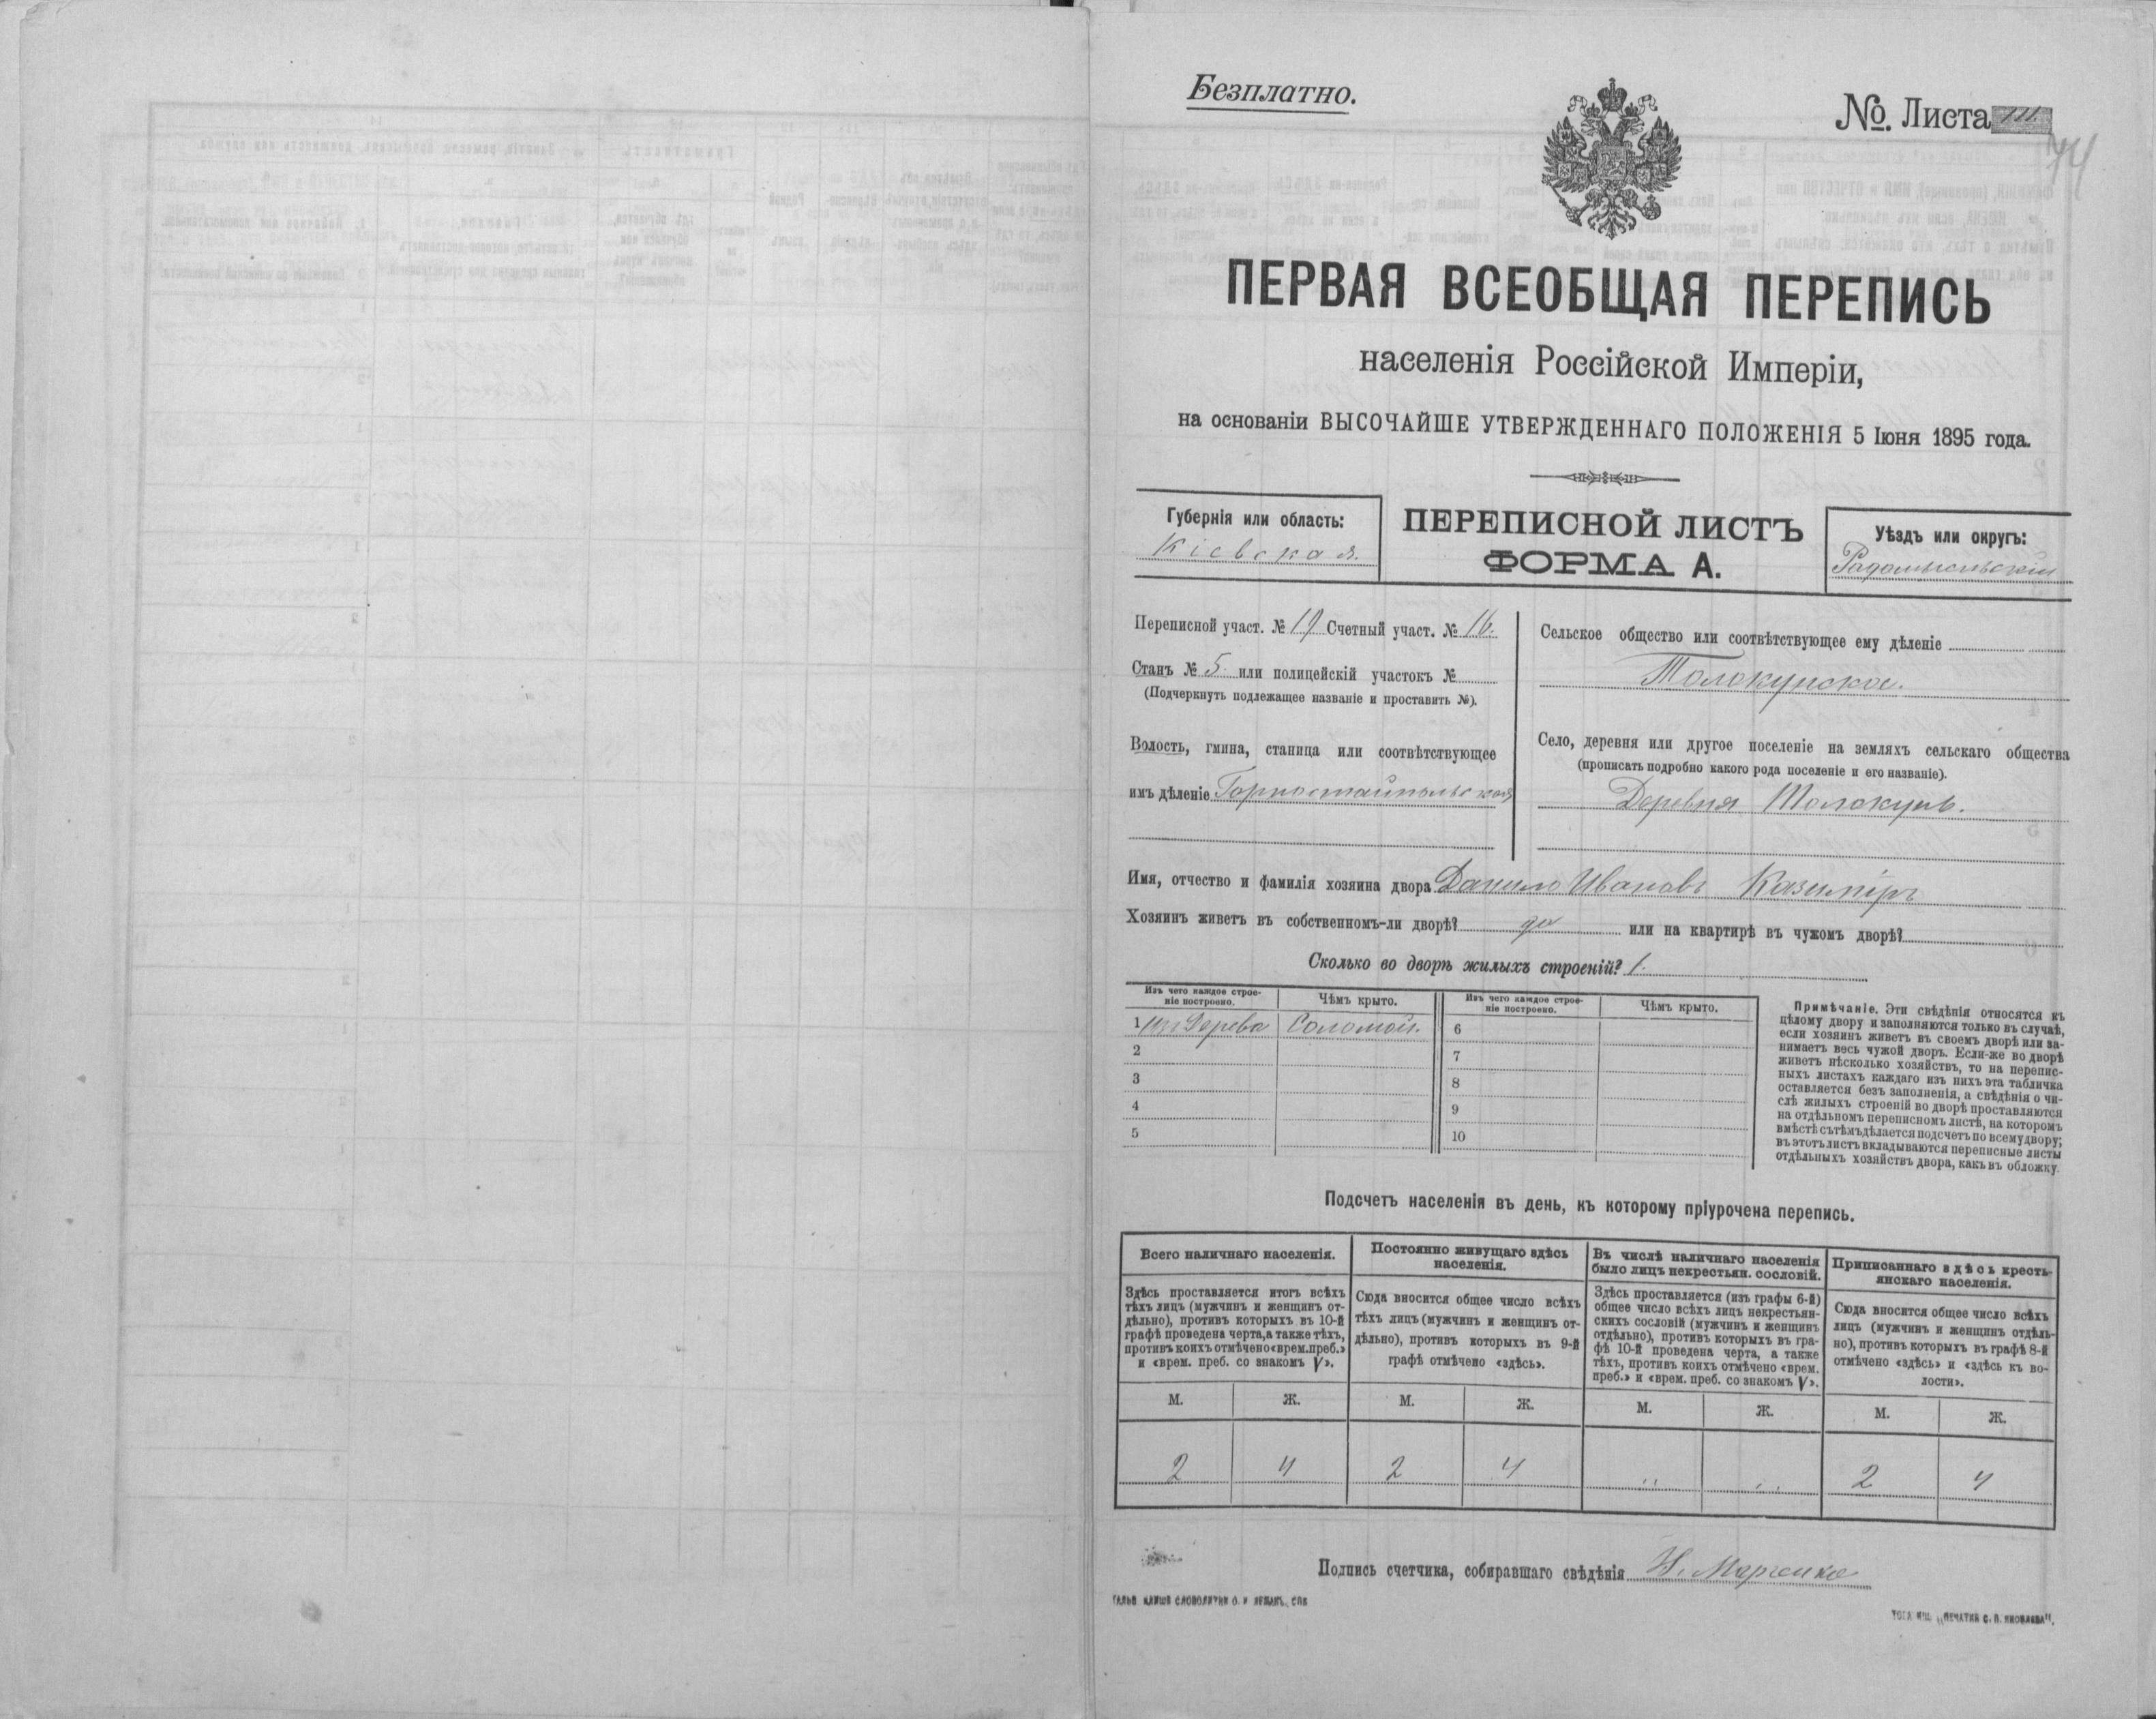 Безплатно.
№. Листа
74
ПЕРВАЯ ВСЕОБЩАЯ ПЕРЕПИСЬ
населенія Россійской Имперіи,
на основаніи ВЫСОЧАЙШЕ УТВЕРЖДЕННАГО ПОЛОЖЕНІЯ 5 Іюня 1895 года.
Губернія или область:
Кіевская.
ПЕРЕПИСНОЙ ЛИСТЪ
ФОРМА А.
Уѣздъ или округъ:
Радомысльскій
Переписной участ. № 19 Счетный участ. № 16.
Станъ № 5. или полицейскій участокъ №
(Подчеркнуть подлежащее названіе и проставить №).
Волость, гмина, станица или соотвѣтствующее
имъ дѣленіе Горностайпольская
Сельское общество или соотвѣтствующее ему дѣленіе
Толокунское.
Село, деревня или другое поселеніе на земляхъ сельскаго общества
(прописать подробно какого рода поселеніе и его названіе).
Деревня Толокунь.
Имя, отчество и фамилія хозяина двора Данило Ивановъ Казиміръ
Хозяинъ живетъ въ собственномъ-ли дворѣ? да или на квартирѣ въ чужомъ дворѣ?
Сколько во дворѣ жилыхъ строеній? 1.
Изъ чего каждое строе-
ніе построено.
Чѣмъ крыто.
Изъ чего каждое строе-
ніе построено.
Чѣмъ крыто.
1 изъ дерева Соломой. 6
2 7
3 8
4 9
5 10
Примѣчаніе. Эти свѣдѣнія относятся къ
цѣлому двору и заполняются только въ случаѣ,
если хозяинъ живетъ въ своемъ дворѣ или за-
нимаетъ весь чужой дворъ. Если-же во дворѣ
живетъ нѣсколько хозяйствъ, то на перепис-
ныхъ листахъ каждаго изъ нихъ эта табличка
оставляется безъ заполненія, а свѣдѣнія о чи-
слѣ жилыхъ строеній во дворѣ проставляются
на отдѣльномъ переписномъ листѣ, на которомъ
вмѣстѣ съ тѣмъ дѣлается подсчетъ по всему двору;
въ этотъ листъ вкладываются переписные листы
отдѣльныхъ хозяйствъ двора, какъ въ обложку.
Подсчетъ населенія въ день, къ которому пріурочена перепись.
Всего наличнаго населенія.
Здѣсь проставляется итогъ всѣхъ
тѣхъ лицъ (мужчинъ и женщинъ от-
дѣльно), противъ которыхъ въ 10-й
графѣ проведена черта, а также тѣхъ,
противъ коихъ отмѣчено «врем. преб.»
и «врем. преб. со знакомъ V».
Постоянно живущаго здѣсь
населенія.
Сюда вносится общее число всѣхъ
тѣхъ лицъ (мужчинъ и женщинъ от-
дѣльно), противъ которыхъ въ 9-й
графѣ отмѣчено «здѣсь».
Въ числѣ наличнаго населенія
было лицъ некрестьян. сословій.
Здѣсь проставляется (изъ графы 6-й)
общее число всѣхъ лицъ некрестьян-
скихъ сословій (мужчинъ и женщинъ
отдѣльно), противъ которыхъ въ гра-
фѣ 10-й проведена черта, а также
тѣхъ, противъ коихъ отмѣчено «врем.
преб.» и «врем. преб. со знакомъ V».
Приписаннаго здѣсь кресть-
янскаго населенія.
Сюда вносится общее число всѣхъ
лицъ (мужчинъ и женщинъ отдѣль-
но), противъ которыхъ въ графѣ 8-й
отмѣчено «здѣсь» и «здѣсь къ во-
лости».
М. Ж. М. Ж. М. Ж. М. Ж.
2 4 2 4 2 4
Подпись счетчика, собиравшаго свѣдѣнія Н. Марченко